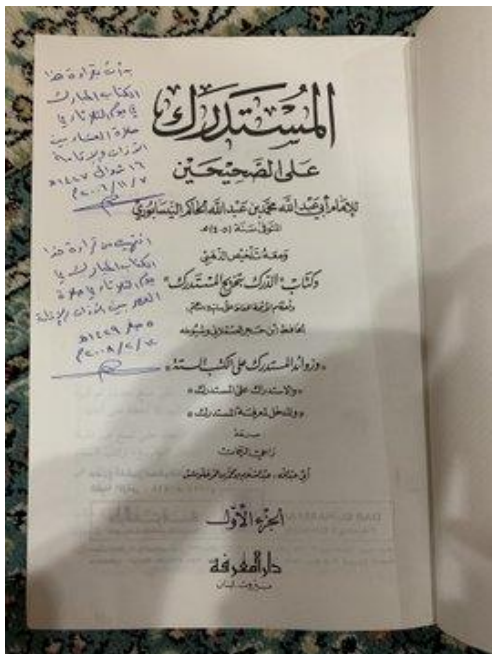 المستدرك
على الصحيحين
للإمام أبي عبد الله محمد بن عبد الله الحاكم النيسابوري
المتوفى سنة (٤٠٥) هـ
ومعه تلخيص الذهبي
وكتاب "الدرك بتخريج المستدرك"
للحافظ ابن حجر العسقلاني وشيوخه
«وزوائد المستدرك على الكتب الستة»
«والاستدراك على المستدرك»
«والمدخل لمعرفة المستدرك»
صنعة
أبي عبد الله، عبد السلام بن محمد بن عمر علوش
الجزء الأول
دار المعرفة
بيروت - لبنان
بدأت بقراءة هذا
الكتاب المبارك
في يوم الثلاثاء في
صلاة العشاء بين
الأذان والإقامة
١٦ شوال ١٤٢٧هـ
٢٠٠٦/١١/٧م
انتهيت من قراءة هذا
الكتاب المبارك في
يوم الثلاثاء في صلاة
العصر بين الأذان والإقامة
٥ صفر ١٤٢٩هـ